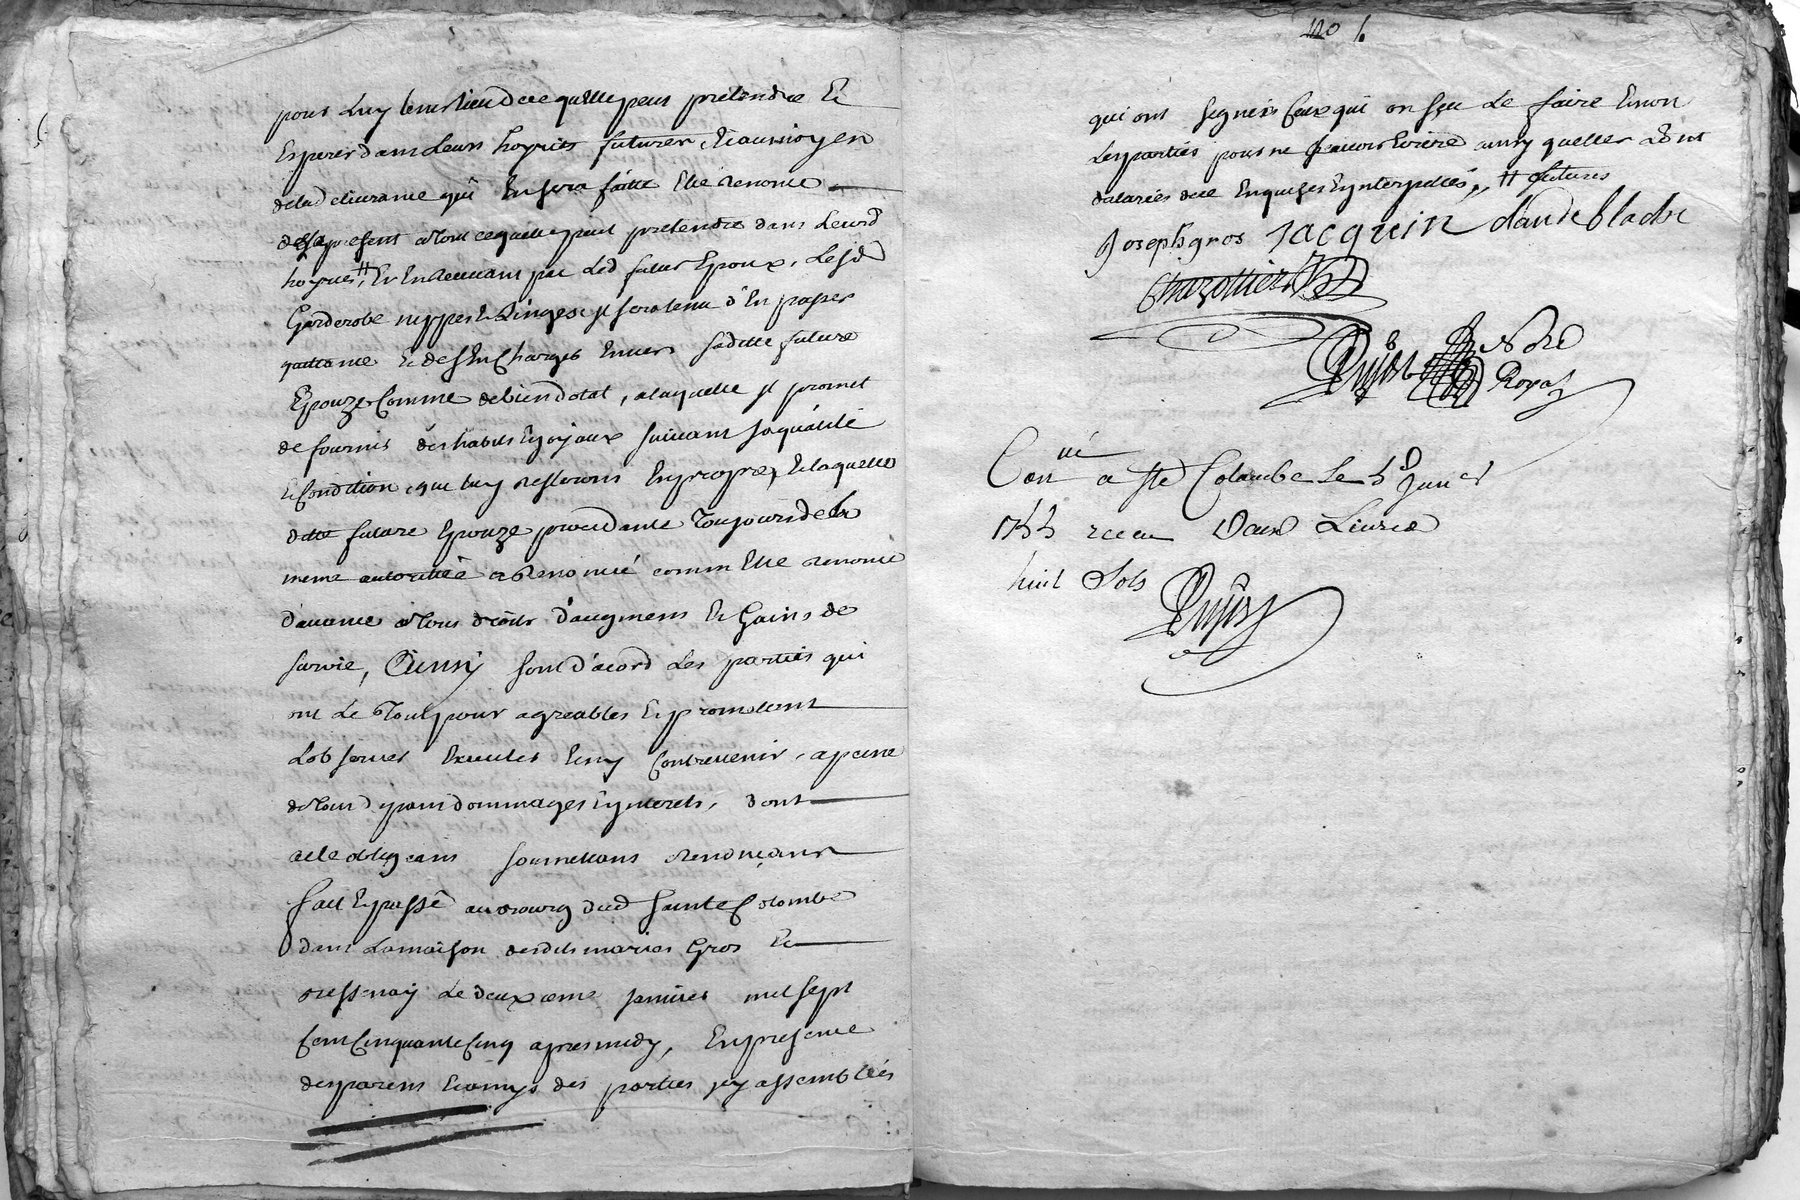 pour Luy tenir lieu de ce quelle peut pretendre Et
Esperer dans Leurs hoyries futures, Et aumoyen
de la delivrance qui En sera faitte Elle renonce
des apresent atout cequelle peut pretendre dans Leurd
hoyries, # Et En Recevant par Led futur Epoux, Lesd
Garderobe nippes & Linges il sera tenu d'En passer
quittance & deschargés Envers saditte future
Epouze Comme de bien dotal, a laquelle jl promet
de fournir des habits & joyaux suivant sa qualité
& Condition, que luy resteront En propre, & laquelle
ditte future Epouze procedante Toujours de la
meme autorité a renoncé comm Elle renonce
d'avance atous droits d'augment & Gains de
survie, Ainsy sont d'acord Les parties qui
ont Le Tout pour agreables & promettent
Lobserver Executer & ny Contrevenir, apeine
de tous depans dommages & jnterets, dont
acte obligeans soumettans renonçans
fait & passé au bourg dud Sainte Colombe
dans La maison desdits mariés Gros &
Le deuxieme janvier mil sept
Cent Cinquante Cinq apres midy, En presence
des parens & amys des parties jcy assemblés
120
qui ont signés Ceux qui on sçu Le faire & non
Les parties pour ne sçavoir Ecrire ainsy quelles ont
declarés de ce Enquizes & jnterpellés, # futures
Joseph gros Jacquin claude blache
Chazottier
Dujast Nore
Royal
Con.lé a Ste Colombe Le 5e Janer
1755 reçu Deux Livres
huit Sols
Dujast